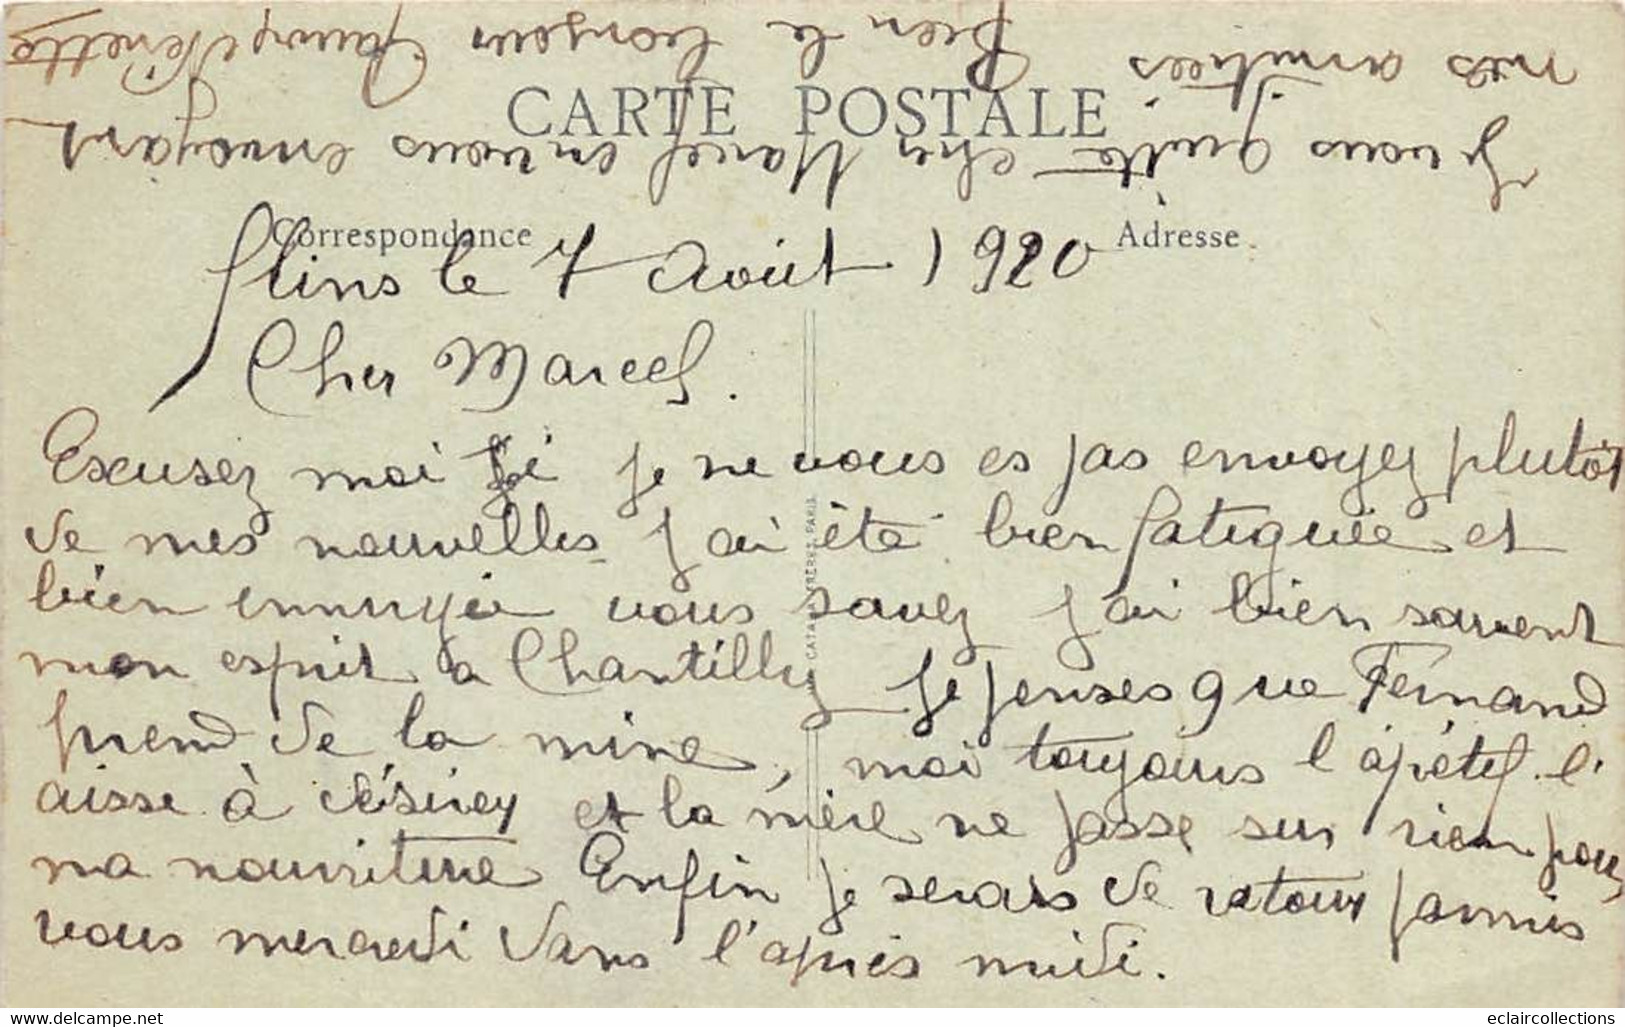 CARTE POSTALE
Correspondance
Adresse
Flins le 7 Août 1920
Cher Marcel.
Excusez moi si je ne vous es pas envoyez plutôt
de mes nouvelles j'ai été bien fatiguée et
bien ennuyée vous savez j'ai bien souvent
mon esprit à Chantilly je penses que Fernand
prend de la mine, moi toujours l'apétit l'
aisse à désirez et la mère ne passe sur rien pour
ma nourriture Enfin je serais de retour parmis
vous mercredi dans l'après midi.
Je vous quitte cher Marcel en vous envoyant
mes amitiées Bien le bonjour Nenette
FRERES, PARIS
delcampe.net
eclaircollections